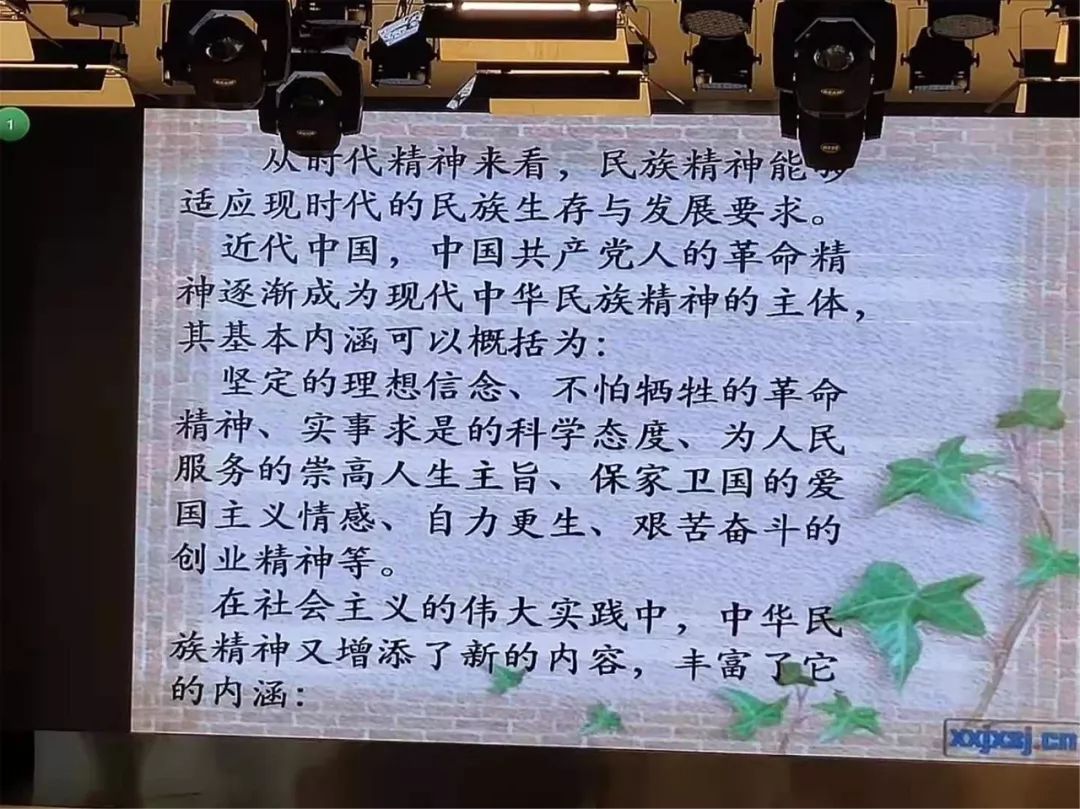 1
从时代精神来看，民族精神能够
适应现时代的民族生存与发展要求。
近代中国，中国共产党人的革命精
神逐渐成为现代中华民族精神的主体，
其基本内涵可以概括为：
坚定的理想信念、不怕牺牲的革命
精神、实事求是的科学态度、为人民
服务的崇高人生主旨、保家卫国的爱
国主义情感、自力更生、艰苦奋斗的
创业精神等。
在社会主义的伟大实践中，中华民
族精神又增添了新的内容，丰富了它
的内涵：
xxjxsj.cn